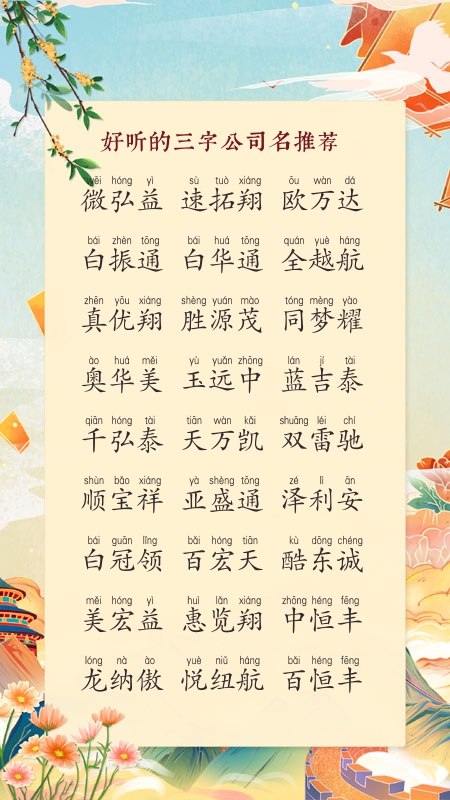 好听的三字公司名推荐
wēi hóng yì sù tuò xiáng ōu wàn dá
微弘益 速拓翔 欧万达
bái zhèn tōng bái huá tōng quán yuè háng
白振通 白华通 全越航
zhēn yōu xiáng shèng yuán mào tóng mèng yào
真优翔 胜源茂 同梦耀
ào huá měi yù yuǎn zhōng lán jí tài
奥华美 玉远中 蓝吉泰
qiān hóng tài tiān wàn kǎi shuāng léi chí
千弘泰 天万凯 双雷驰
shùn bǎo xiáng yà shèng tōng zé lì ān
顺宝祥 亚盛通 泽利安
bái guān lǐng bǎi hóng tiān kù dōng chéng
白冠领 百宏天 酷东诚
měi hóng yì huì lǎn xiáng zhōng héng fēng
美宏益 惠览翔 中恒丰
lóng nà ào yuè niǔ háng bǎi héng fēng
龙纳傲 悦纽航 百恒丰